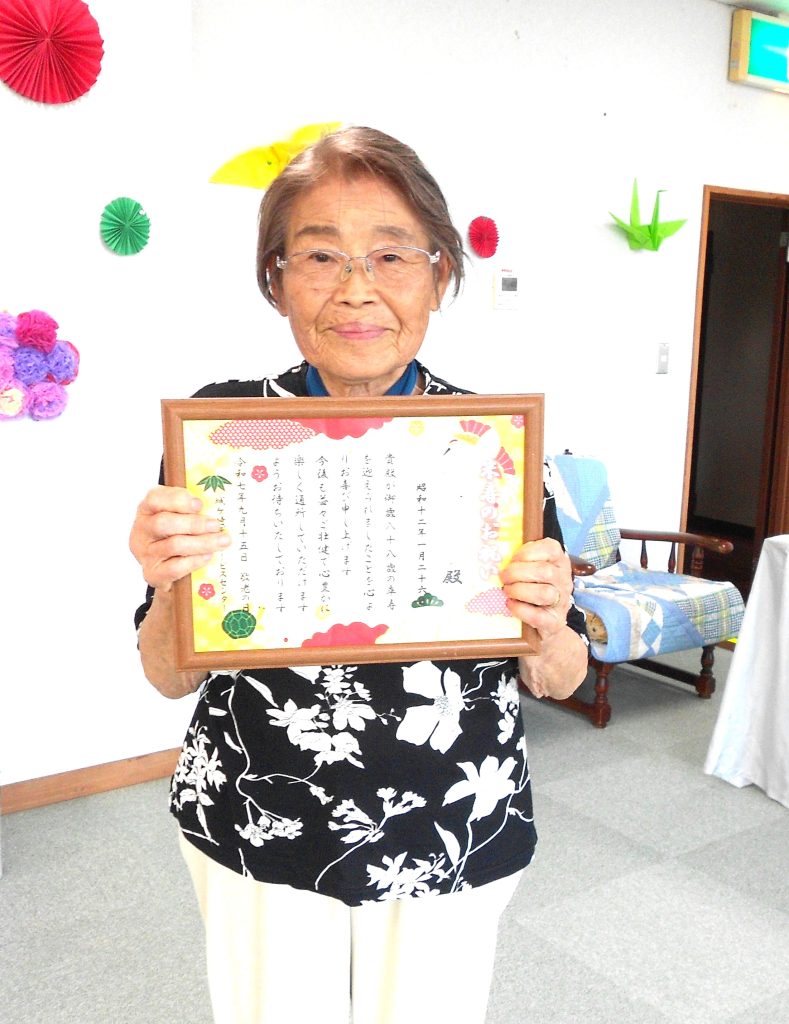 米寿のお祝い
昭和十二年一月二十六
殿
貴殿が御歳八十八歳の米寿
を迎えられましたことを心よ
りお喜び申し上げます
今後も益々ご壮健で心豊かに
楽しく通所していただけます
ようお待ちいたしております
令和七年九月十五日 敬老の日
センター